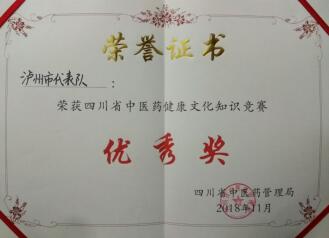 荣誉证书
泸州市代表队：
荣获四川省中医药健康文化知识竞赛
优秀奖
四川省中医药管理局
2018年11月